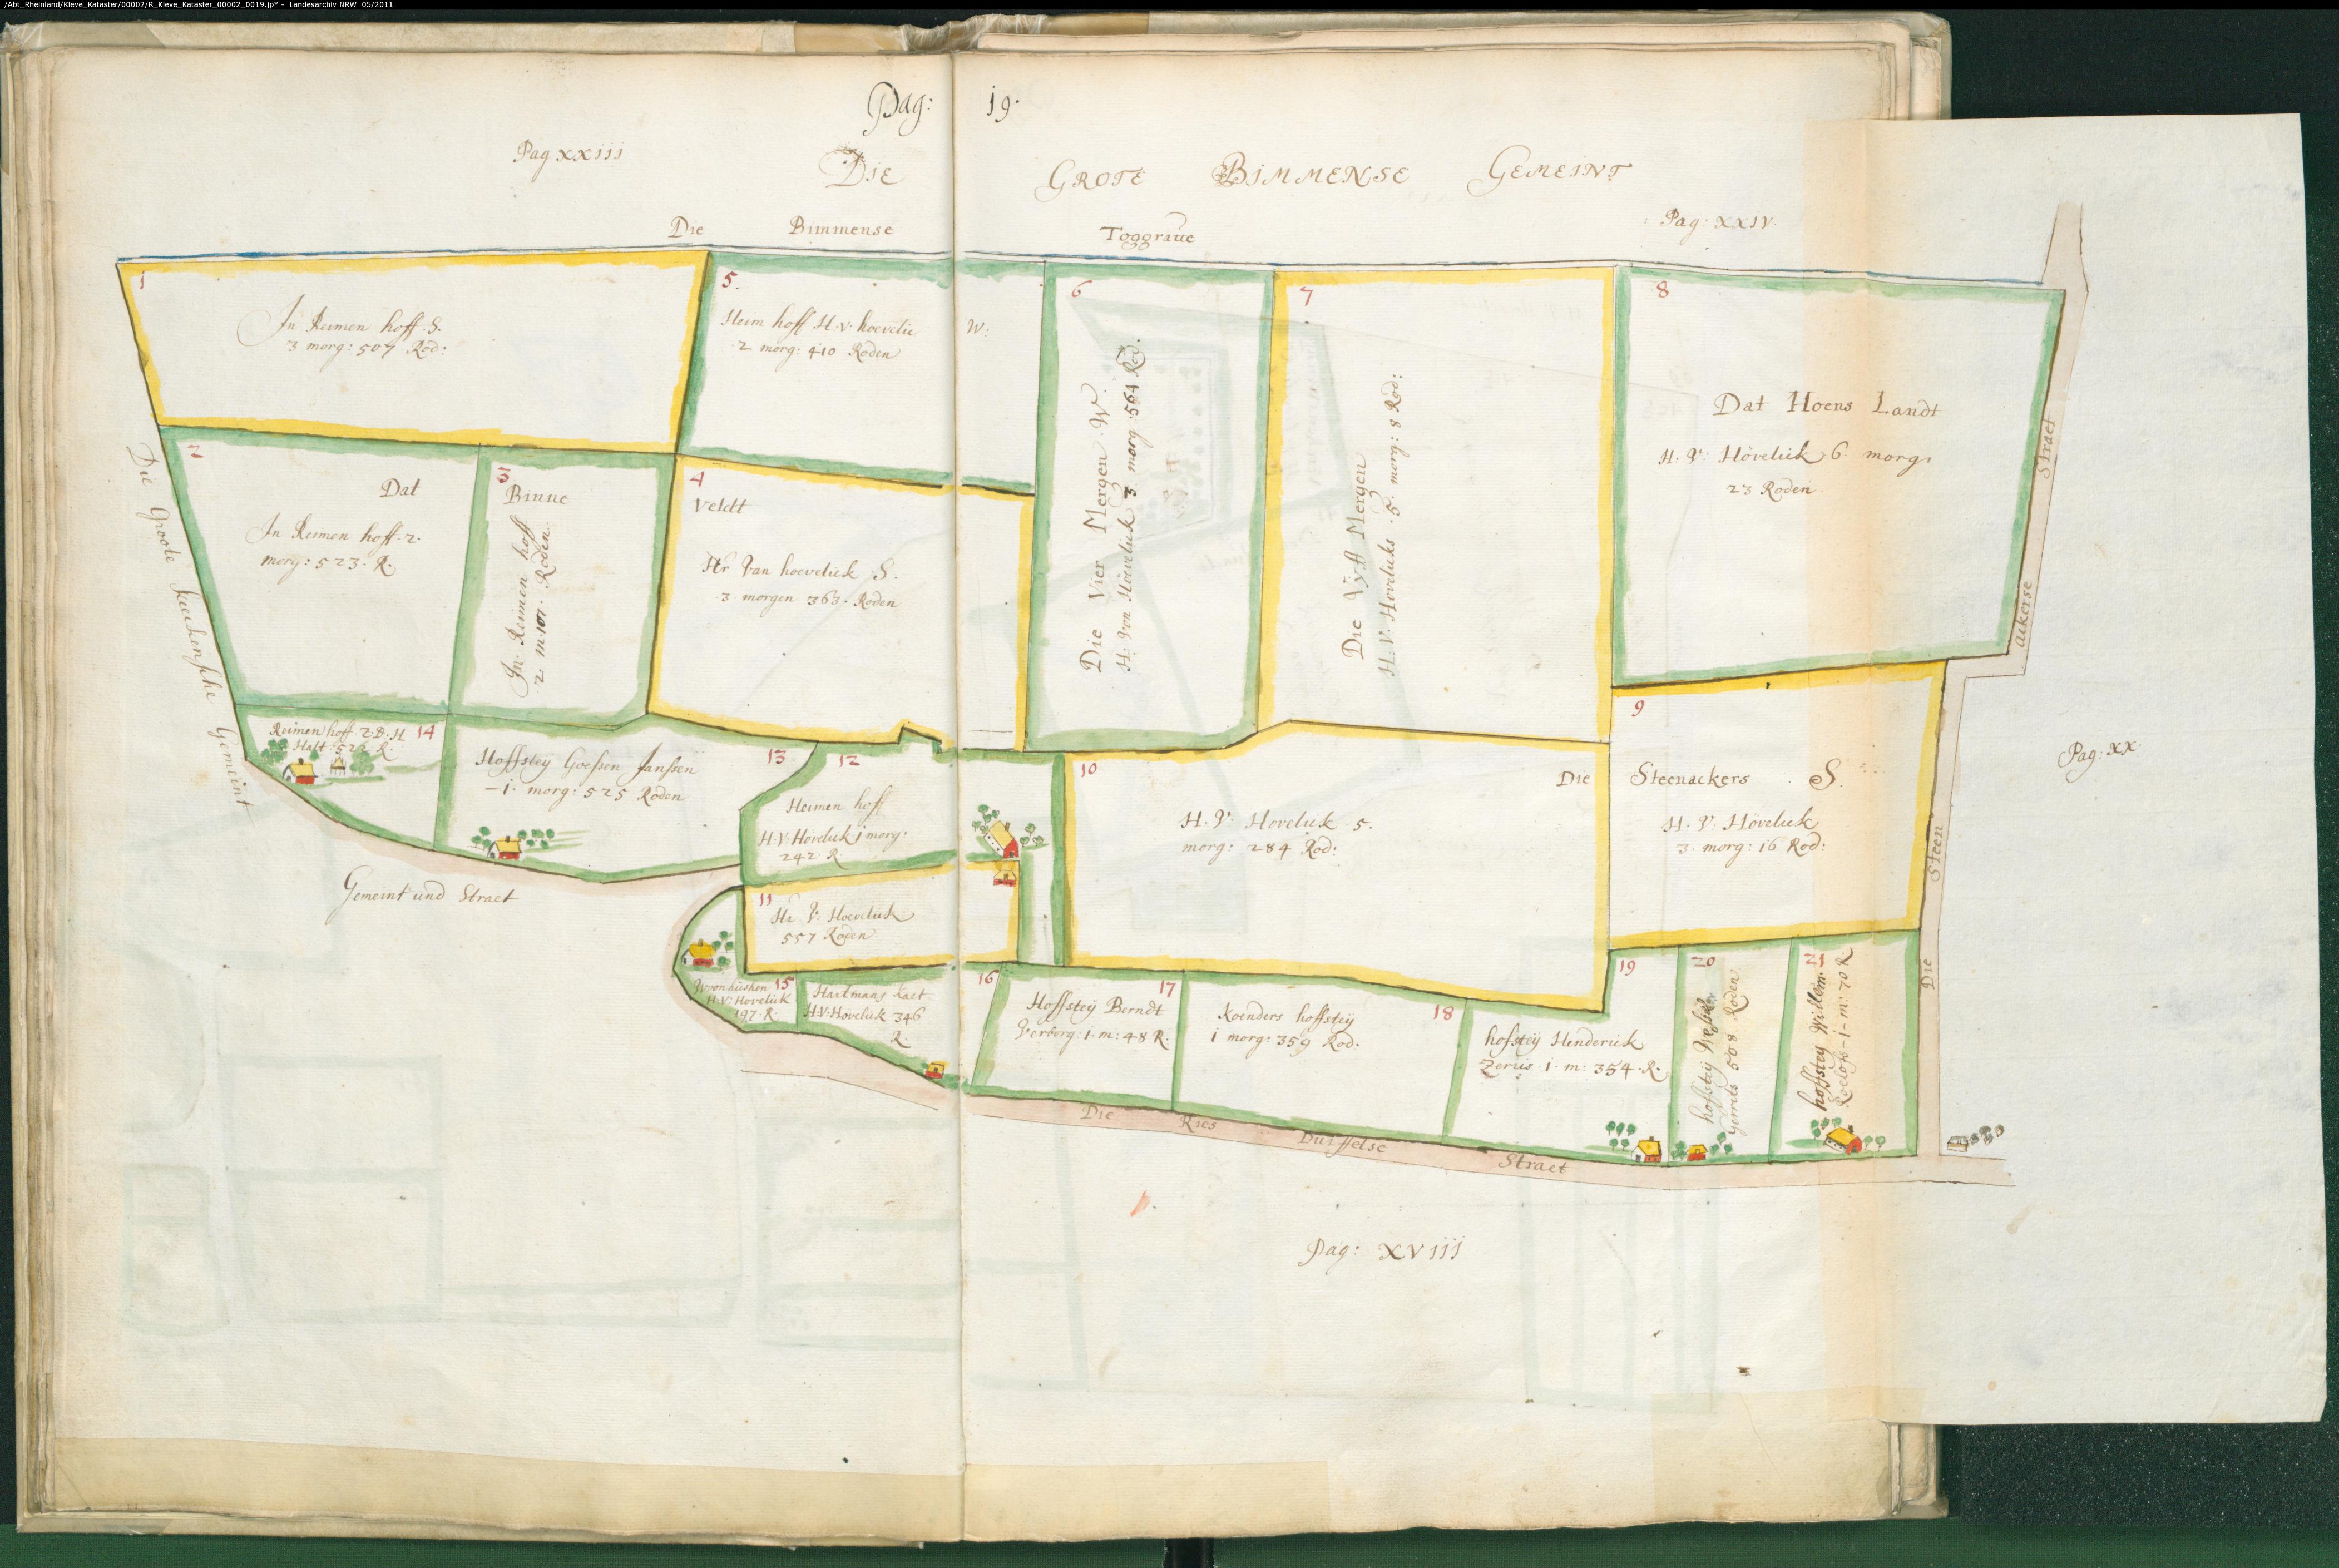 /Abt_Rheinland/Kleve_Kataster/00002/R_Kleve_Kataster_00002_0019.jp* - Landesarchiv NRW 05/2011
Pag: 19.
Pag xxiii
Die Grote Bimmense Gemeint
Die Bimmense Toggraue
Pag: xxiv.
1
In Reimen hoff. S.
3 morg: 507 Rod:
5.
Heim hoff H. v. hoevelic W:
2 morg: 410 Roden
6
Die Vier Mergen. W.
H. von Hoevelick 3 morg. 561 Rod.
7
Die Vyff Mergen
H. V. Hovelicks . 5. morg: 8 Rod:
8
Dat Hoens Landt
H. V. Hövelick 6 morg:
23 Roden
2
Dat
In Reimen hoff. 2.
morg: 523. R.
3
Binne
In Reimen hoff
2 m 107. Roden
4
Veldt
Hr Van hoevelick S.
3 morgen 363. Roden
Die Groote keekensche Gemeint
Die Steen ackerse Straet
9
Steenackers S.
H. V. Hövelick
3 morg: 16 Rod:
10
Die
H. V. Hovelick 5.
morg: 284 Rod:
Pag: xx.
14
Reimen hoff. 2. D. H
Halt 526 R.
13
Hoffsteÿ Goessen Janssen
-1. morg: 525 Roden
12
Heimen hoff
H. V. Hövelick j morg:
242 R
11
Hr V. Hoevelick
557 Roden
Gemeint und Straet
15
Woonhüsken
H. V. Hovelick
197. R.
16
Hartmans Kaet
H. V. Hovelick 346
R
17
Hoffsteÿ Berndt
Verborg: 1. m: 48 R.
18
Koenders hoffsteÿ
i morg: 359 Rod.
19
hofsteÿ Henderick
1. m: 354. R.
20
hofsteÿ
Gerrits 508 Roden
21
hoffsteÿ Willem
Roelofs - 1 - m: 70 R
Die Ries Duiffelse Straet
Pag: xviii